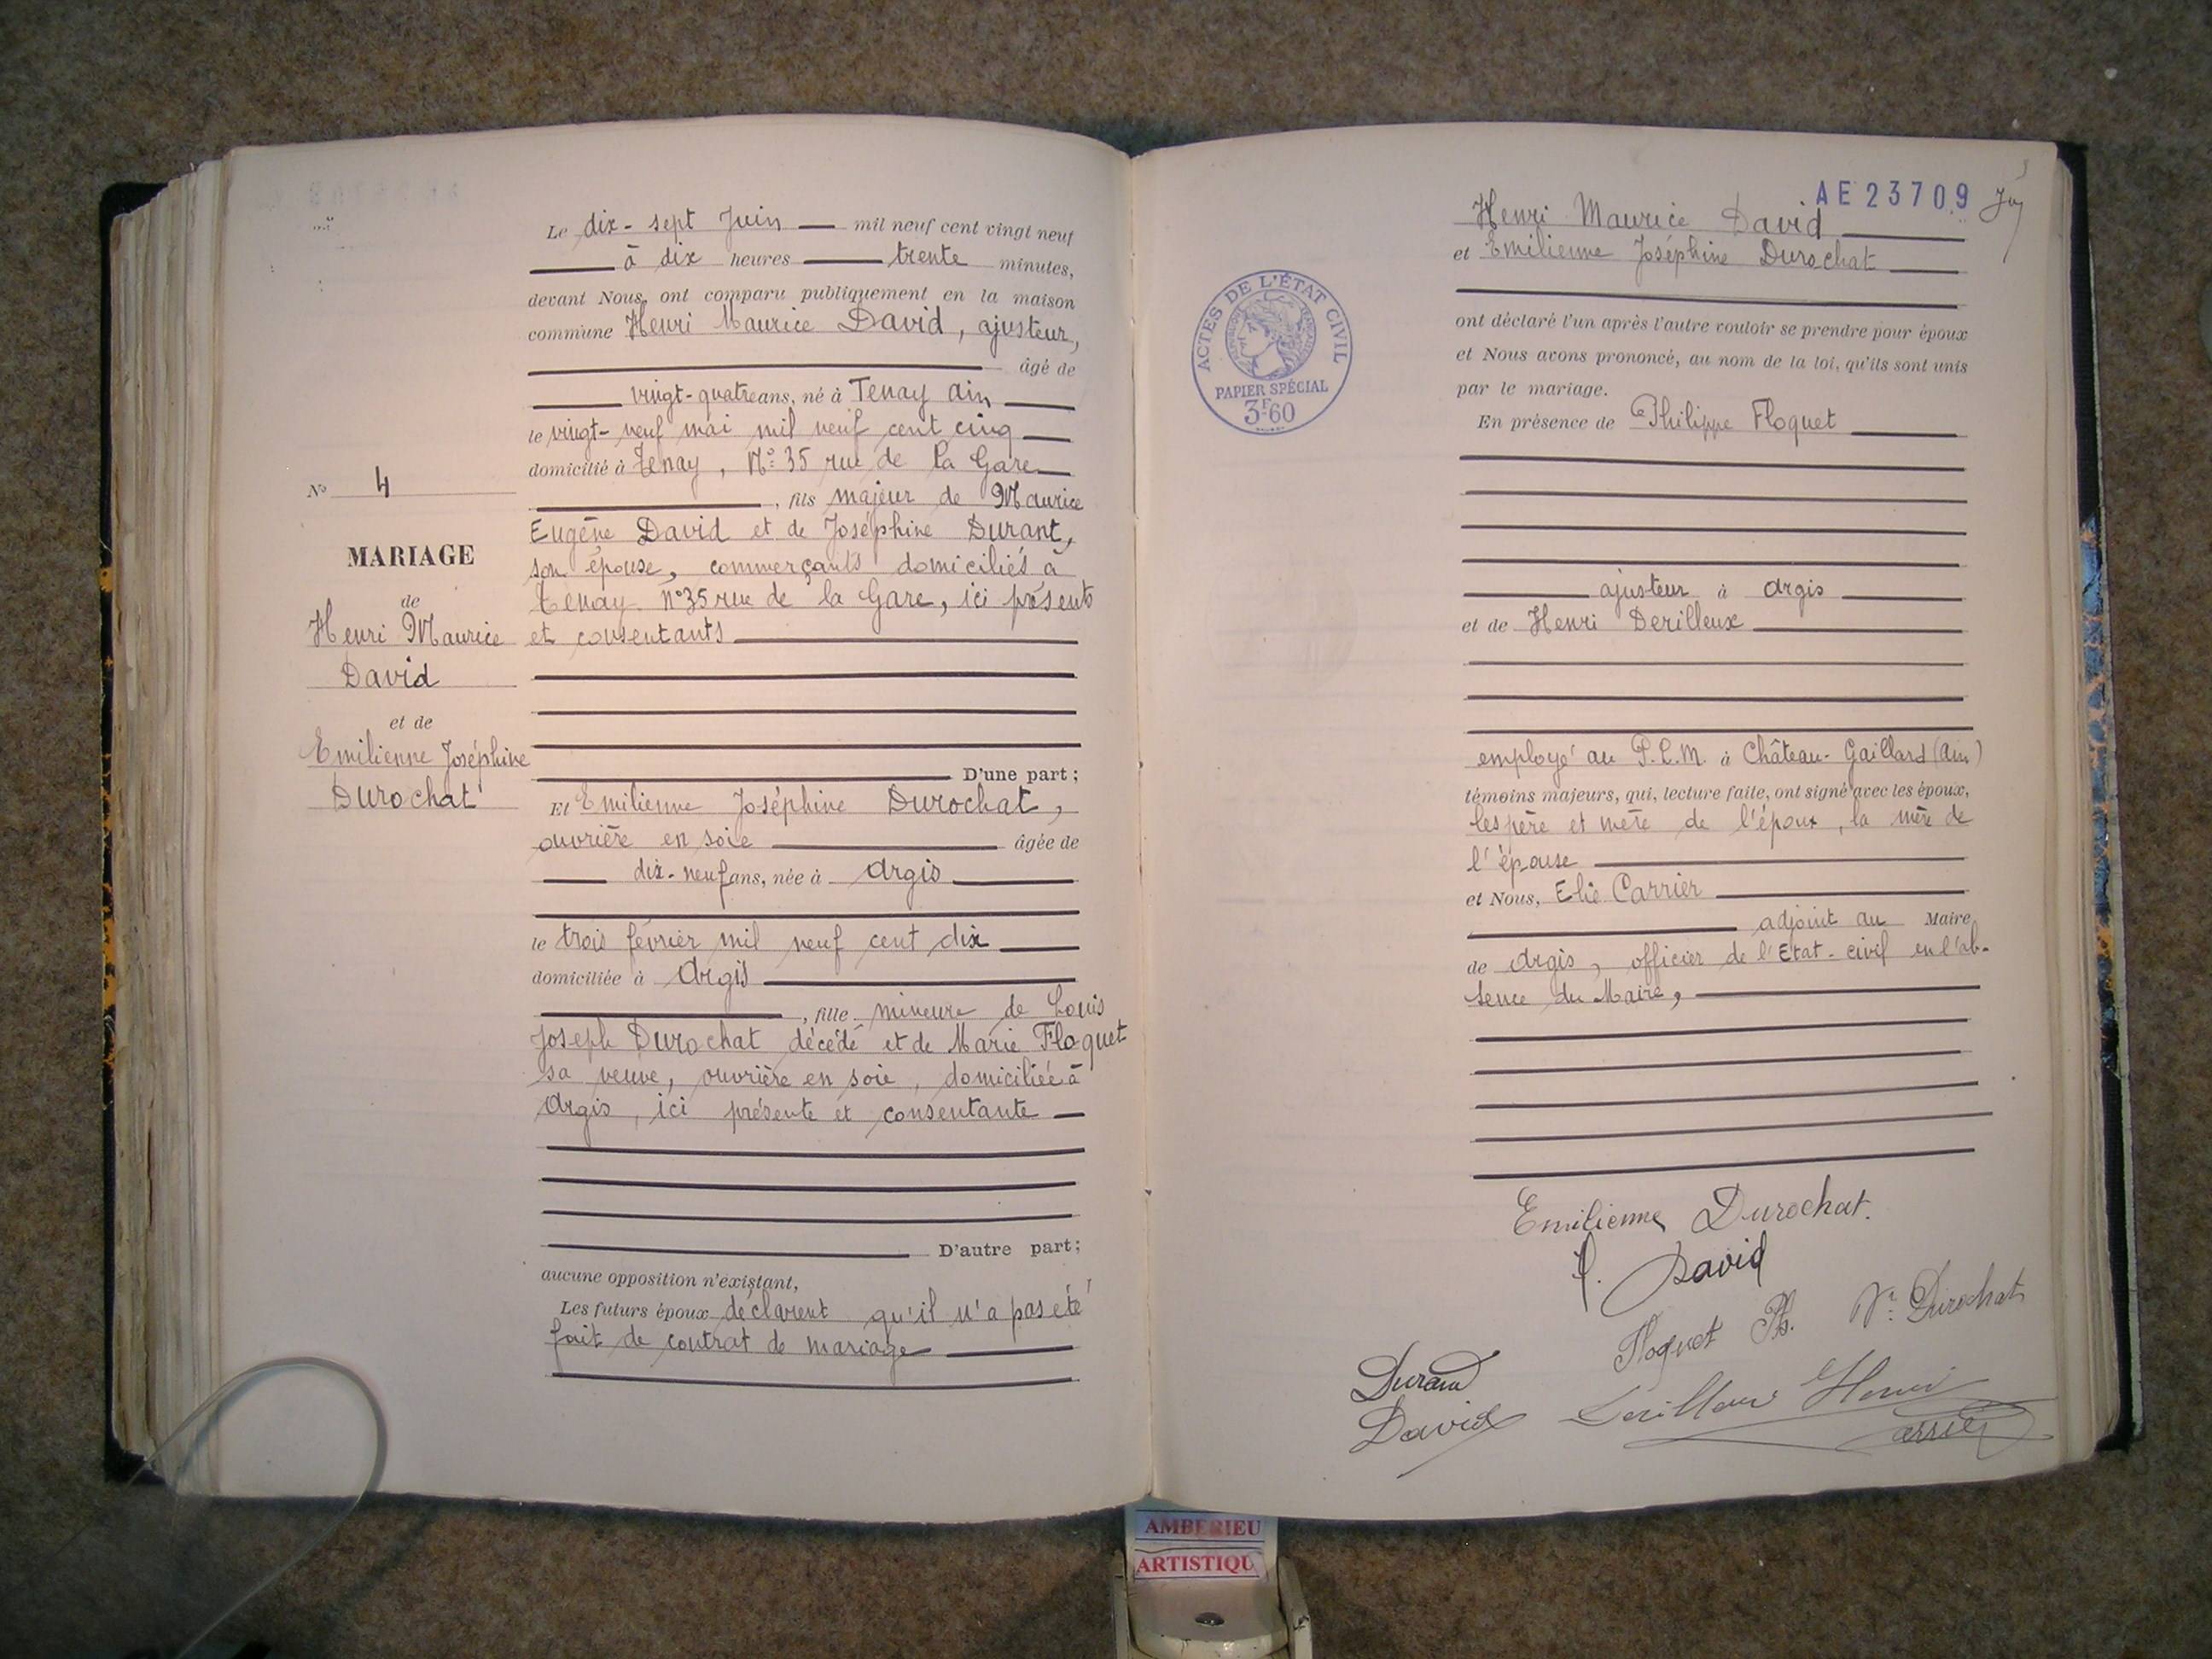 N° 4
MARIAGE
de
Henri Maurice
David
et de
Emilienne Joséphine
Durochat
Le dix-sept Juin mil neuf cent vingt neuf
à dix heures trente minutes,
devant Nous, ont comparu publiquement en la maison
commune Henri Maurice David, ajusteur,
âgé de
vingt-quatre ans, né à Tenay Ain
le vingt-neuf mai mil neuf cent cinq
domicilié à Tenay, N° 35 rue de la Gare
, fils majeur de Maurice
Eugène David et de Joséphine Durant,
son épouse, commerçants domiciliés à
Tenay n° 35 rue de la Gare, ici présents
et consentants
D'une part;
Et Emilienne Joséphine Durochat,
ouvrière en soie âgée de
dix-neuf ans, née à Argis
le trois février mil neuf cent dix
domiciliée à Argis
, fille mineure de Louis
Joseph Durochat décédé et de Marie Floquet
sa veuve, ouvrière en soie, domiciliée à
Argis, ici présente et consentante
D'autre part;
aucune opposition n'existant,
Les futurs époux déclarent qu'il n'a pas été
fait de contrat de mariage
AE 23709
Henri Maurice David
et Emilienne Joséphine Durochat
ACTES DE L'ÉTAT CIVIL
PAPIER SPÉCIAL
3F60
ont déclaré l'un après l'autre vouloir se prendre pour époux
et Nous avons prononcé, au nom de la loi, qu'ils sont unis
par le mariage.
En présence de Philippe Floquet
ajusteur à Argis
et de Henri Derilleux
employé au P.L.M. à Château-Gaillard (Ain)
témoins majeurs, qui, lecture faite, ont signé avec les époux,
les père et mère de l'époux, la mère de
l'épouse
et Nous, Elie Carrier
adjoint au Maire
de Argis, officier de l'Etat-civil en l'ab-
sence du Maire,
Emilienne Durochat.
H. David
Floquet Ph. Vve Durochat
Durand
David
Derilleux Henri
Carrier
AMBERIEU
ARTISTIQU